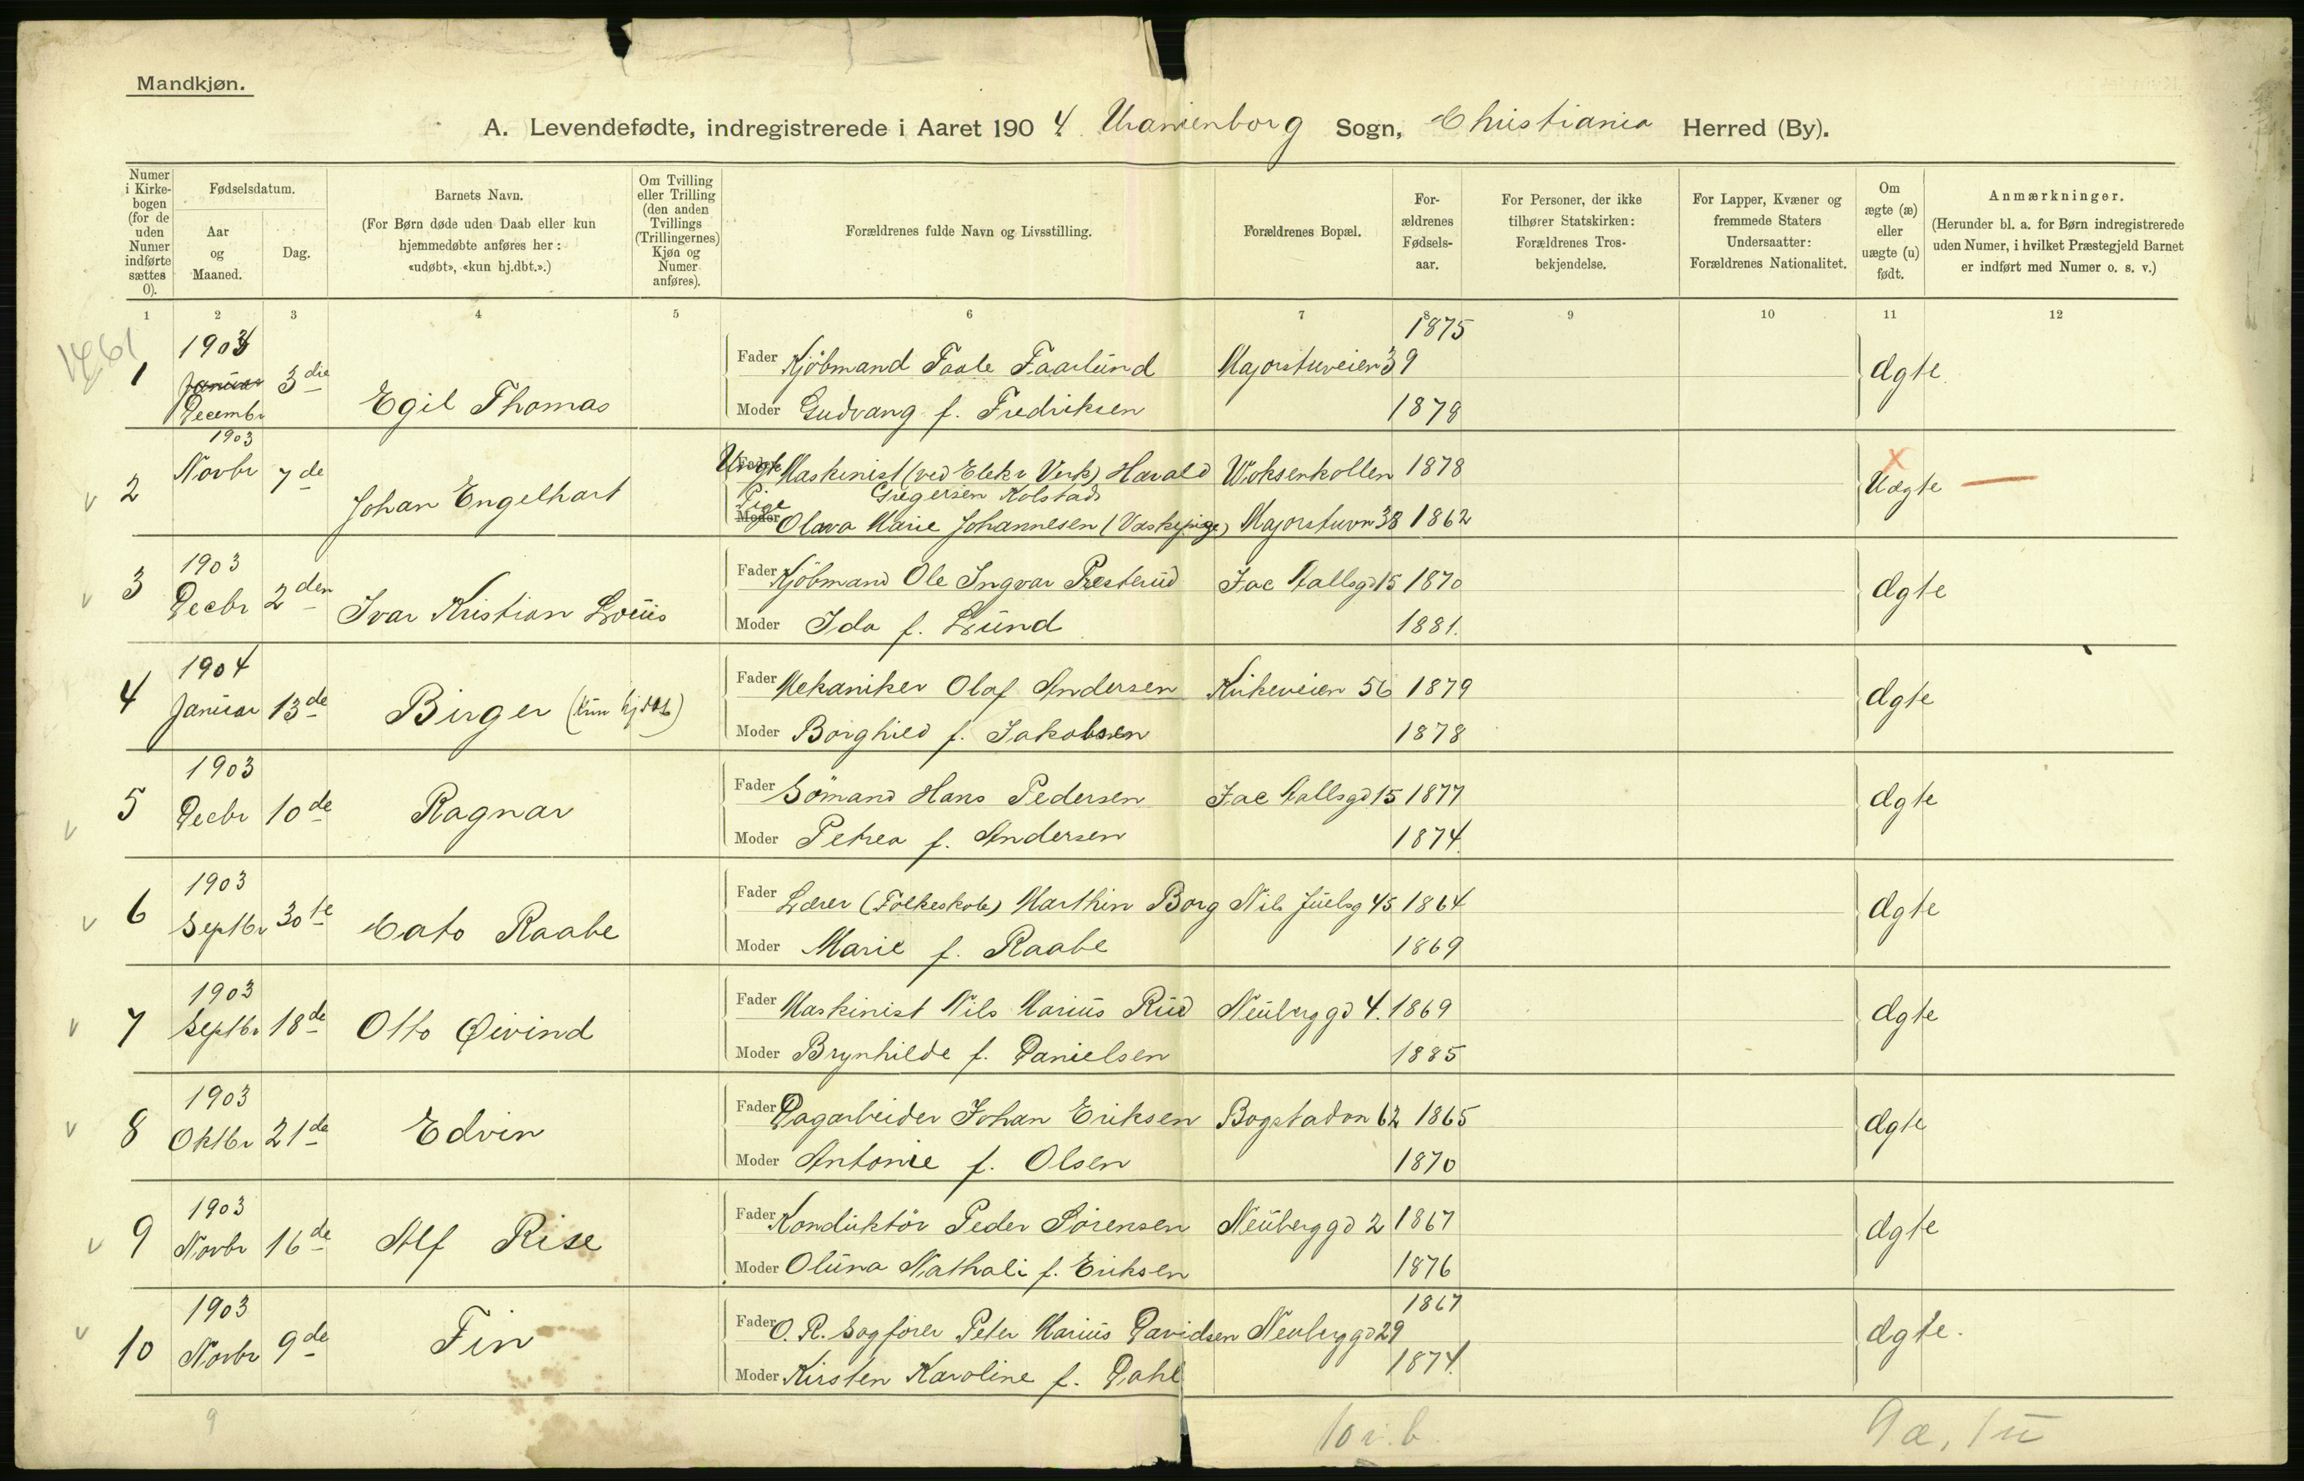 Mandkjøn.
A. Levendefødte, indregistrerede i Aaret 1904 Uranienborg Sogn, Christiania Herred (By).
Numer i Kirkebogen (for de uden Numer indførte sættes 0).
Fødselsdatum.
Aar og Maaned.
Dag.
Barnets Navn.
(For Børn døde uden Daab eller kun hjemmedøbte anføres her: «udøbt», «kun hj.dbt.».)
Om Tvilling eller Trilling (den anden Tvillings (Trillingernes) Kjøn og Numer anføres).
Forældrenes fulde Navn og Livsstilling.
Forældrenes Bopæl.
Forældrenes Fødselsaar.
For Personer, der ikke tilhører Statskirken: Forældrenes Trosbekjendelse.
For Lapper, Kvæner og fremmede Staters Undersaatter: Forældrenes Nationalitet.
Om ægte (æ) eller uægte (u) født.
Anmærkninger.
(Herunder bl. a. for Børn indregistrerede uden Numer, i hvilket Præstegjeld Barnet er indført med Numer o. s. v.)
1 2 3 4 5 6 7 8 9 10 11 12
1 1903 Januar Decembr 3die Egil Thomas
Fader Kjöbmand Taale Faarlund Majorstuveien 39 1875 ægte
Moder Gudvang f. Fredriksen 1879
2 1903 Novbr 7de Johan Engelhart
Ungk Fader Maskinist (ved Elekr Verk) Harald Gregersen Kolstad Woksenkollen 1878 Uægte
Pige Moder Olava Marie Johannesen (Vaskepige) Majorstuvn 38 1862
3 1903 Decbr 2den Ivar Kristian Louis
Fader Kjöbmand Ole Ingvar Presterud Jac Aallsgd 15 1870 ægte
Moder Ida f. Lund 1881.
4 1904 Januar 13de Birger (kun hjdbt)
Fader Mekaniker Olaf Andersen Kirkeveien 56 1879 ægte
Moder Borghild f. Jakobsen 1878
5 1903 Decbr 10de Ragnar
Fader Sömand Hans Pedersen Jac Aallsgd 15 1877 ægte
Moder Petrea f. Andersen 1874.
6 1903 Septbr 30te Cato Raabe
Fader Lærer (Folkeskole) Marthin Borg Nils Juelsg 45 1864 ægte
Moder Marie f. Raabe 1869
7 1903 Septbr 18de Otto Øivind
Fader Maskinist Nils Marius Rud Neuberggd 4. 1869 ægte
Moder Brynhilde f. Danielsen 1885
8 1903 Oktbr 21de Edvin
Fader Dagarbeider Johan Eriksen Bogstadvn 62 1865 ægte
Moder Antonie f. Olsen 1870
9 1903 Novbr 16de Alf Rise
Fader Konduktör Peder Sörensen Neuberggd 2 1867 ægte
Moder Oluna Nathali f. Eriksen 1876
10 1903 Novbr 9de Fin
Fader O. R. Sagförer Peter Marius Davidsen Neuberggd 29 1867 ægte.
Moder Kirsten Karoline f. Dahl 1874.
9 10 i. b. 9æ, 1u